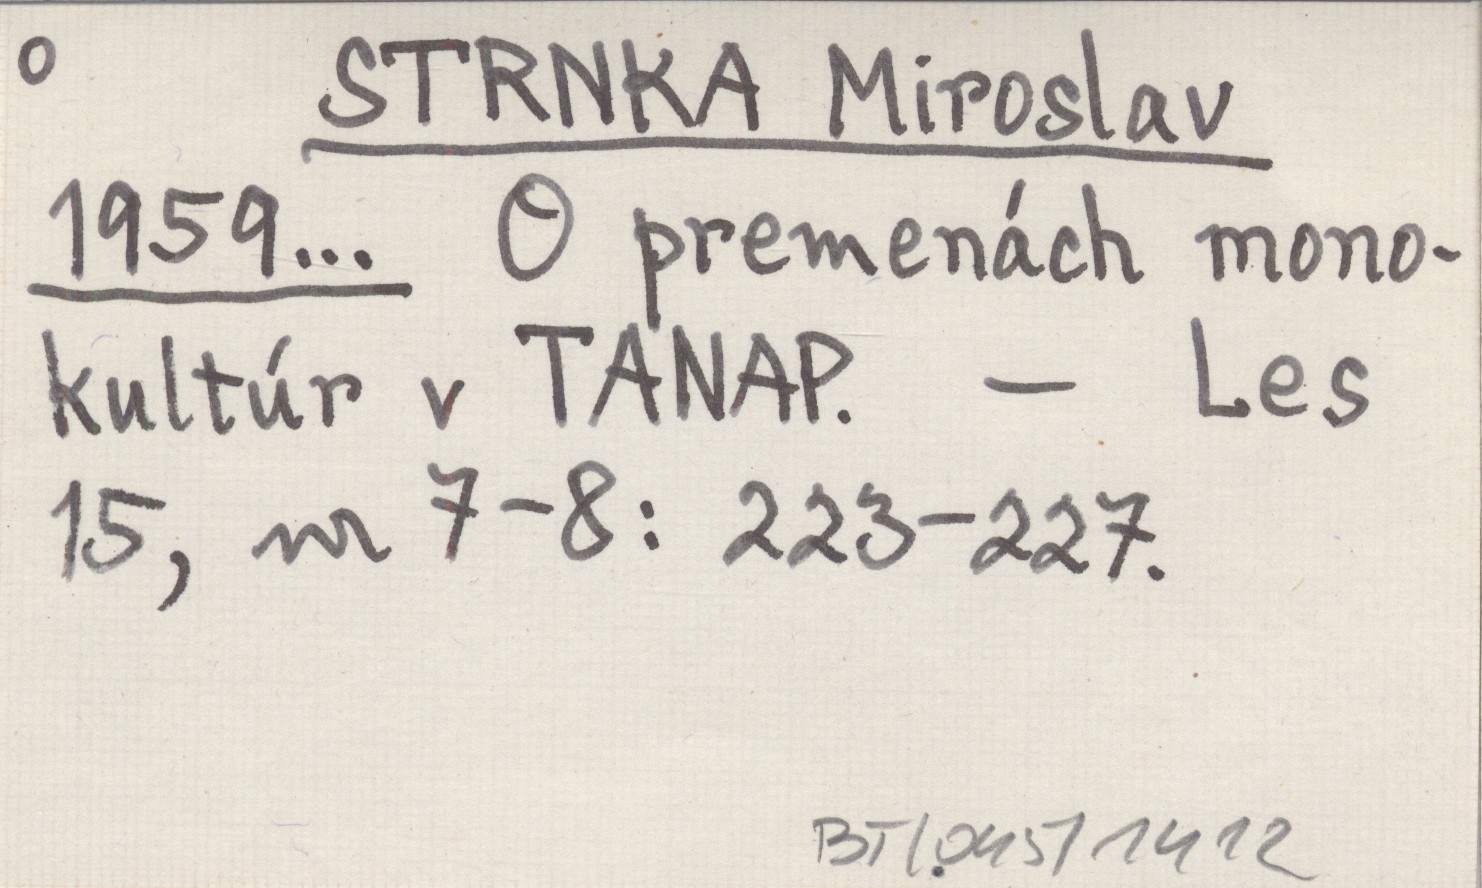 o STRNKA Miroslav
1959... O premenách mono-
kultúr v TANAP. — Les
15, nr 7-8: 223-227.
BT/.045/1412